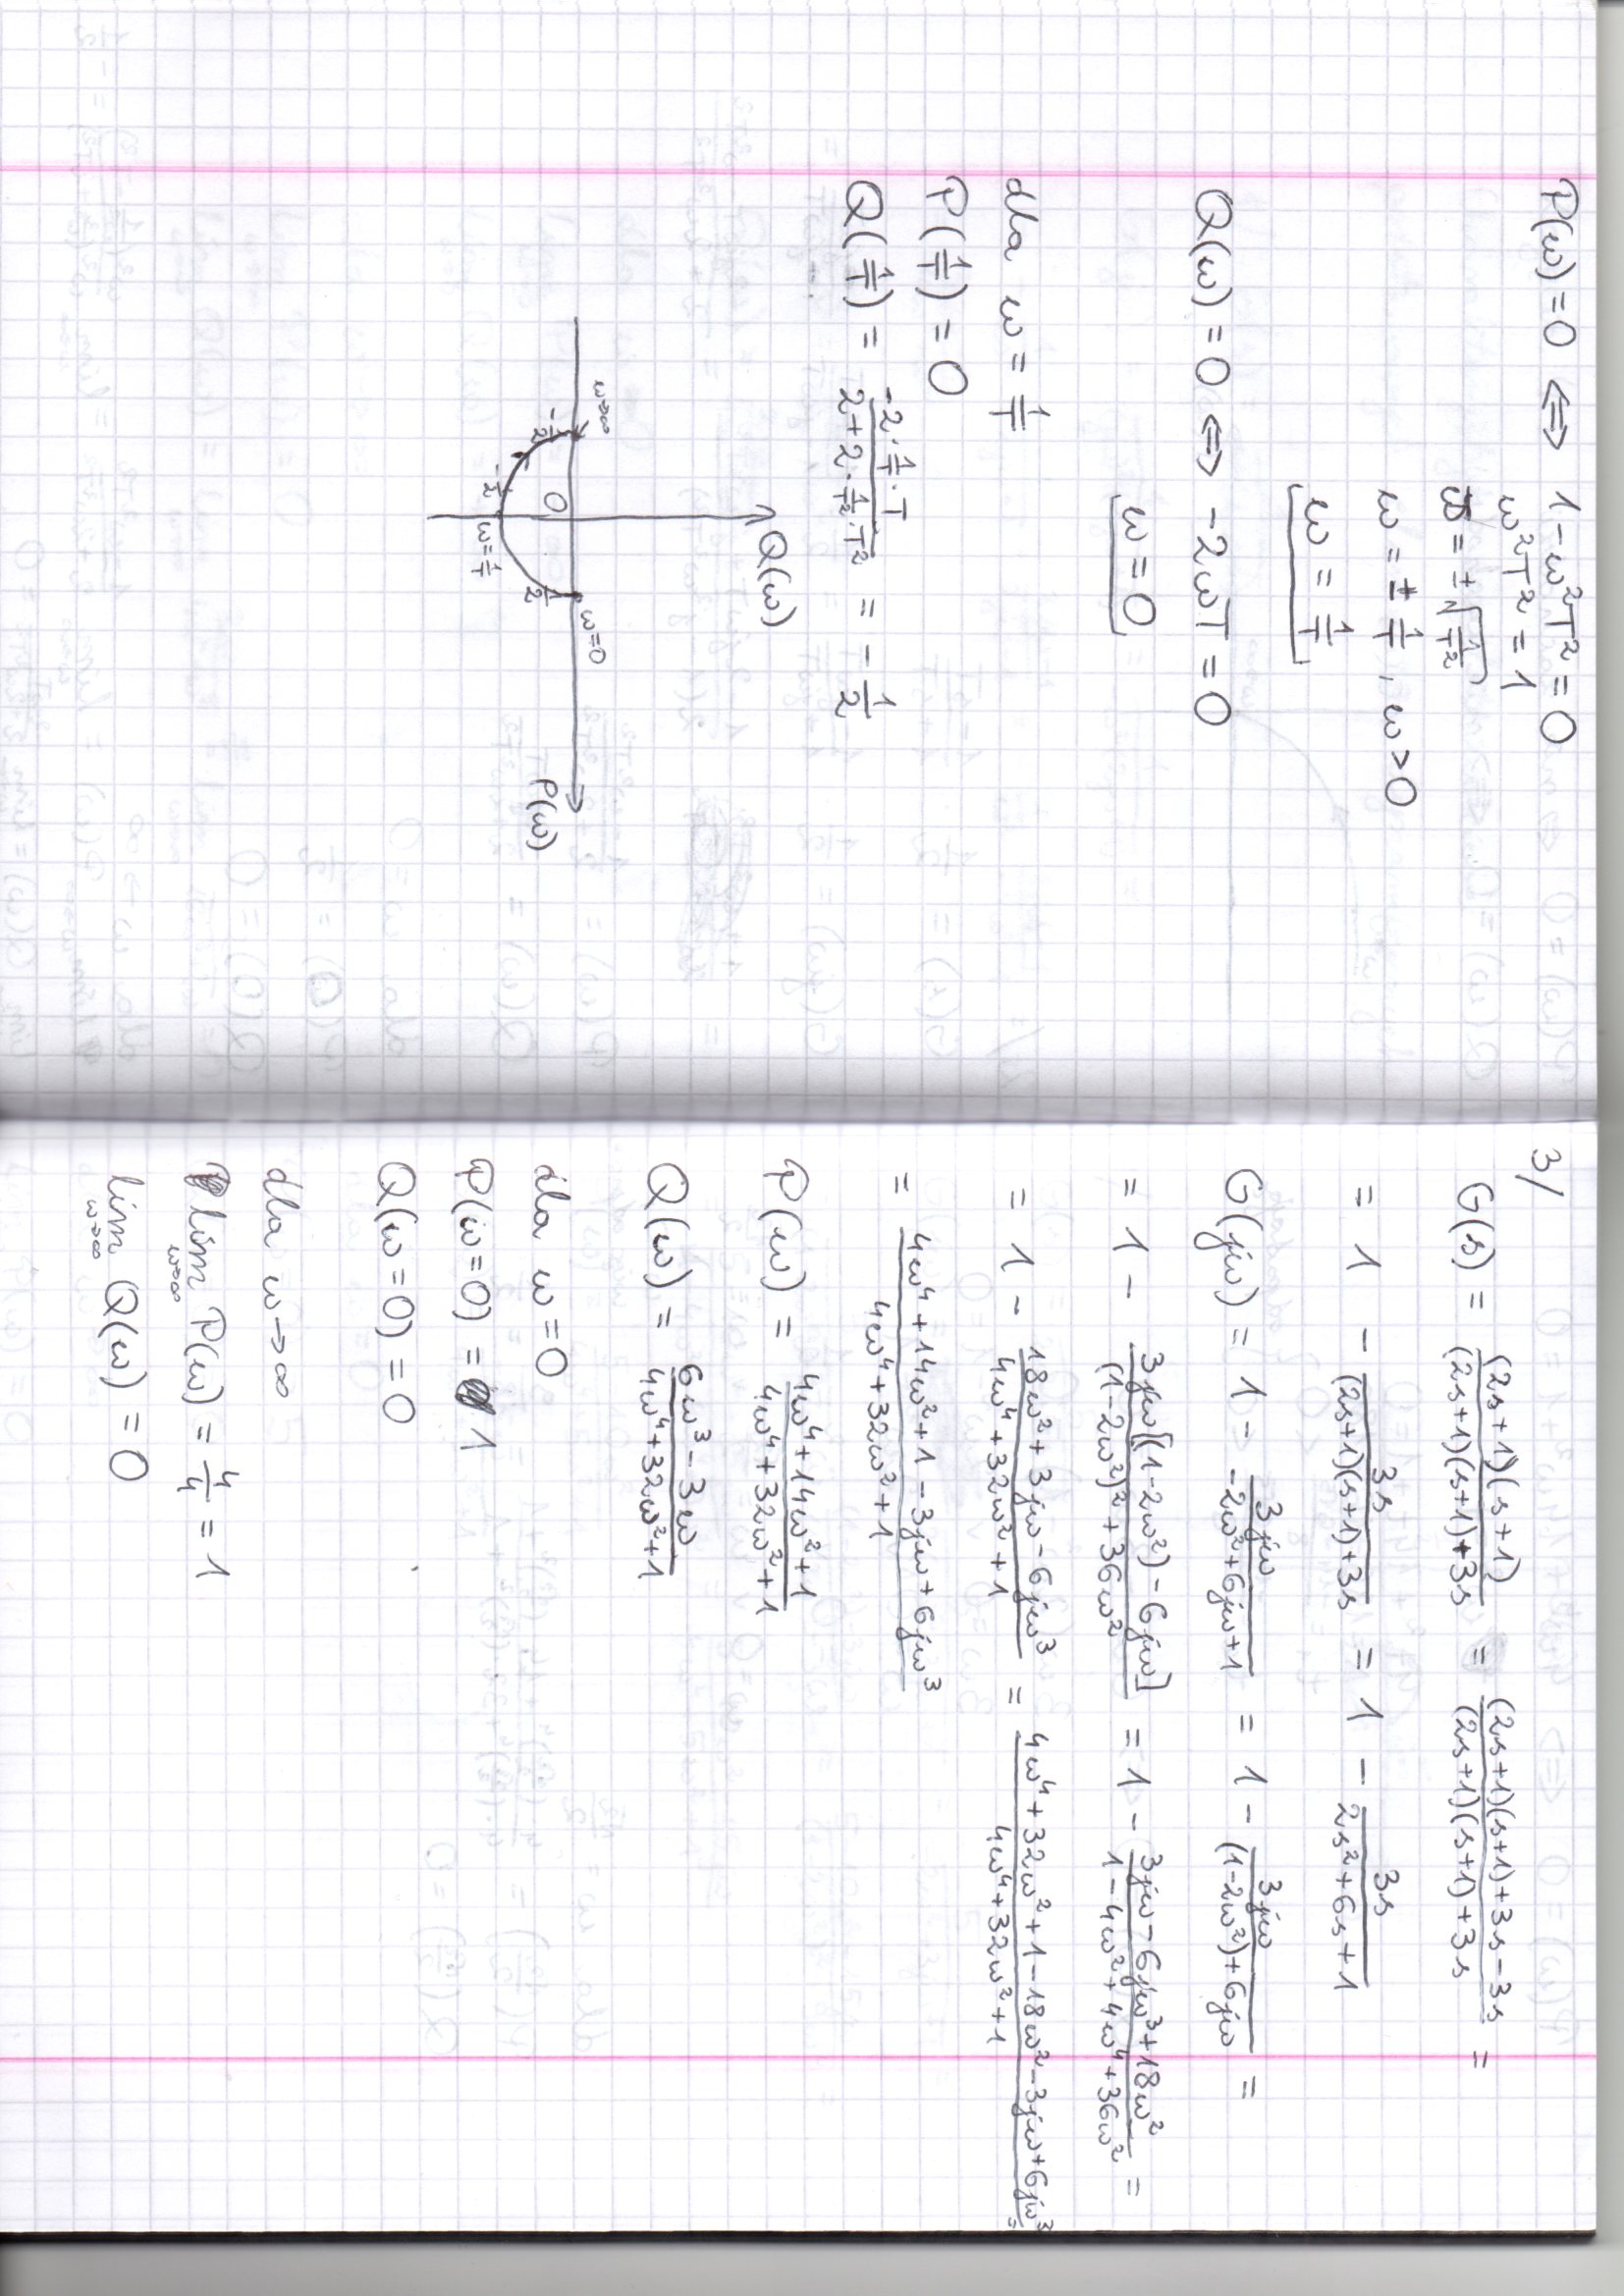 P(ω) = 0 ⟺ 1 - ω²T² = 0
ω²T² = 1
ω = ±√(1/T²)
ω = ± 1/T , ω > 0
ω = 1/T
Q(ω) = 0 ⟺ -2ωT = 0
ω = 0
dla ω = 1/T
P(1/T) = 0
Q(1/T) = (-2 · 1/T · T)/(2 + 2 · 1/T² · T²) = - 1/2
Q(ω)
ω→∞
ω=0
-1/2
0
1/2
P(ω)
-1/2
ω=1/T
3/
G(s) = ((2s+1)(s+1))/((2s+1)(s+1)+3s) = ((2s+1)(s+1)+3s-3s)/((2s+1)(s+1)+3s) =
= 1 - 3s/((2s+1)(s+1)+3s) = 1 - 3s/(2s²+6s+1)
G(jω) = 1 - 3jω/(-2ω²+6jω+1) = 1 - 3jω/((1-2ω²)+6jω) =
= 1 - (3jω[(1-2ω²)-6jω])/((1-2ω²)²+36ω²) = 1 - (3jω-6jω³+18ω²)/(1-4ω²+4ω⁴+36ω²) =
= 1 - (18ω²+3jω-6jω³)/(4ω⁴+32ω²+1) = (4ω⁴+32ω²+1-18ω²-3jω+6jω³)/(4ω⁴+32ω²+1) =
= (4ω⁴+14ω²+1-3jω+6jω³)/(4ω⁴+32ω²+1)
P(ω) = (4ω⁴+14ω²+1)/(4ω⁴+32ω²+1)
Q(ω) = (6ω³-3ω)/(4ω⁴+32ω²+1)
dla ω=0
P(ω=0) = 1
Q(ω=0) = 0
dla ω→∞
lim ω→∞ P(ω) = 4/4 = 1
lim ω→∞ Q(ω) = 0